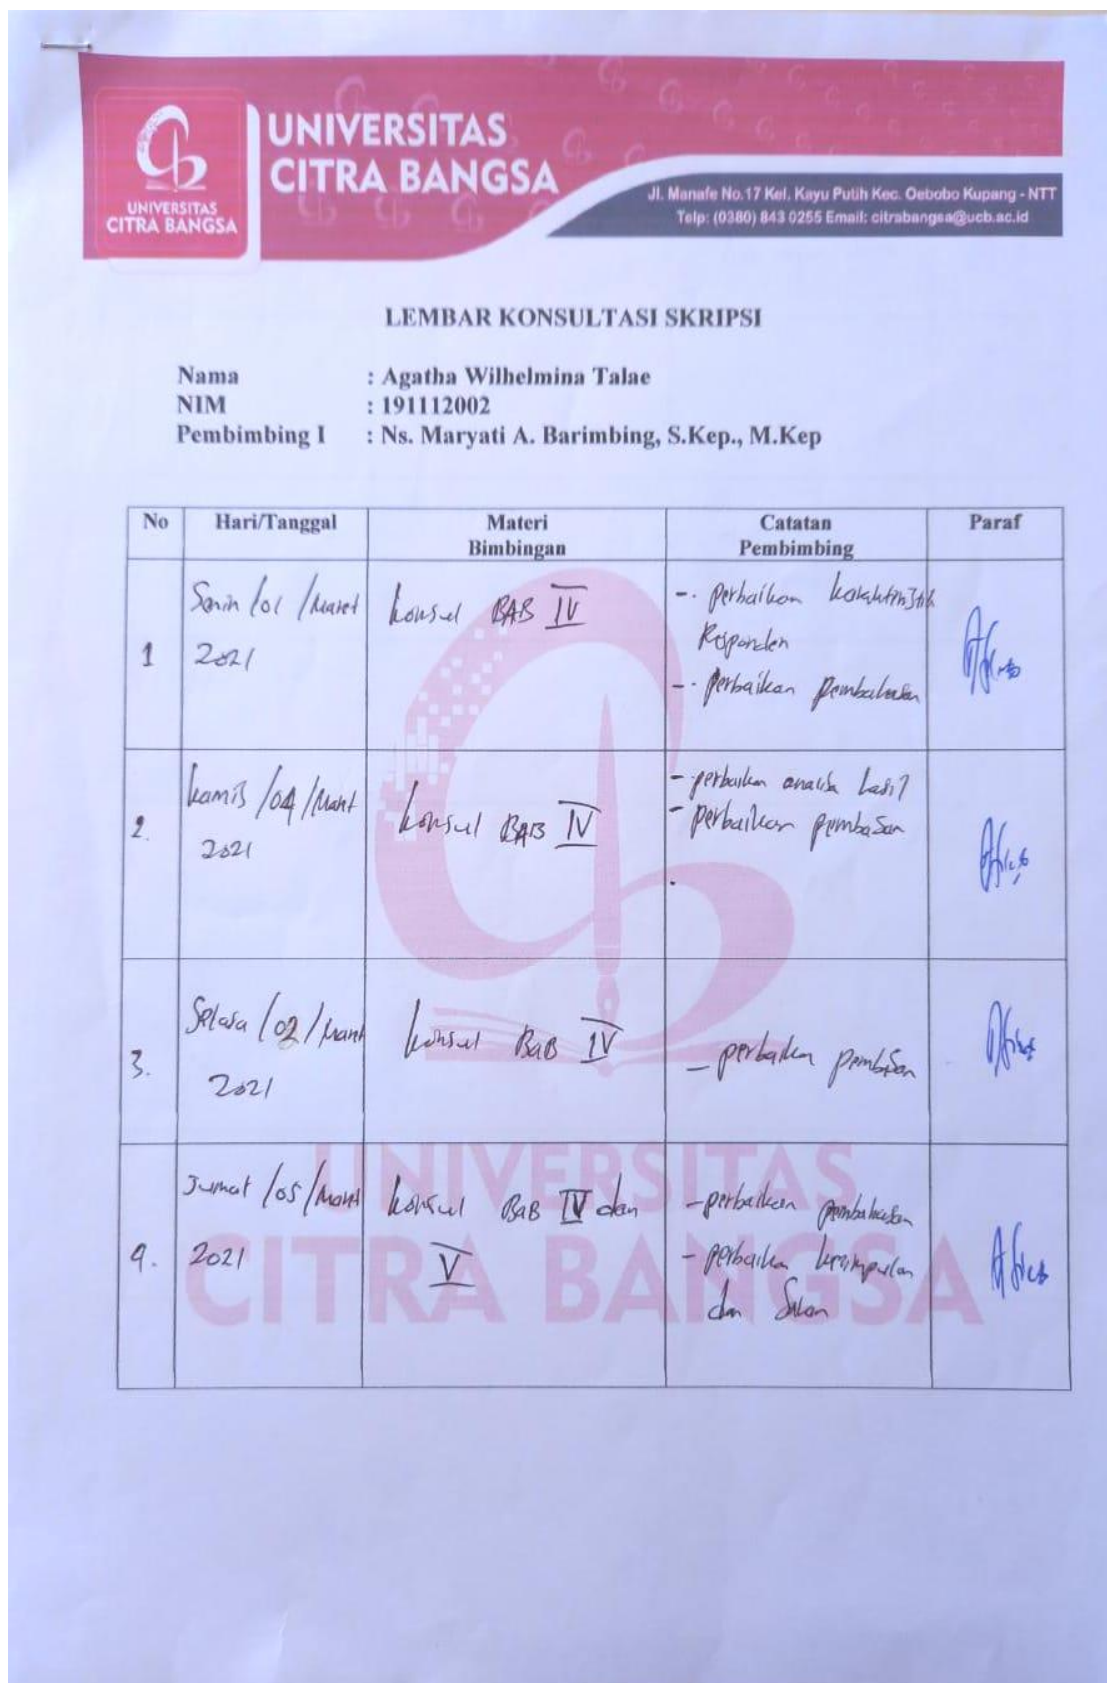 UNIVERSITAS
CITRA BANGSA
UNIVERSITAS
CITRA BANGSA
Jl. Manafe No.17 Kel. Kayu Putih Kec. Oebobo Kupang - NTT
Telp: (0380) 843 0255 Email: citrabangsa@ucb.ac.id
LEMBAR KONSULTASI SKRIPSI
Nama : Agatha Wilhelmina Talae
NIM : 191112002
Pembimbing I : Ns. Maryati A. Barimbing, S.Kep., M.Kep
No Hari/Tanggal Materi Bimbingan Catatan Pembimbing Paraf
1 Senin /01 /Maret 2021
konsul BAB IV
- perbaikan karakteristik
Responden
- perbaikan pembahasan
2. kamis /04 /Maret 2021
konsul BAB IV
- perbaikan analisa hasil
- perbaikan pembasan
3. Selasa /02 /Maret 2021
konsul BaB IV
- perbaikan
4. Jumat /05 /Maret 2021
konsul BaB IV dan
V
- perbaikan pembahasan
- perbaikan kesimpulan
dan Saran
UNIVERSITAS
CITRA BANGSA